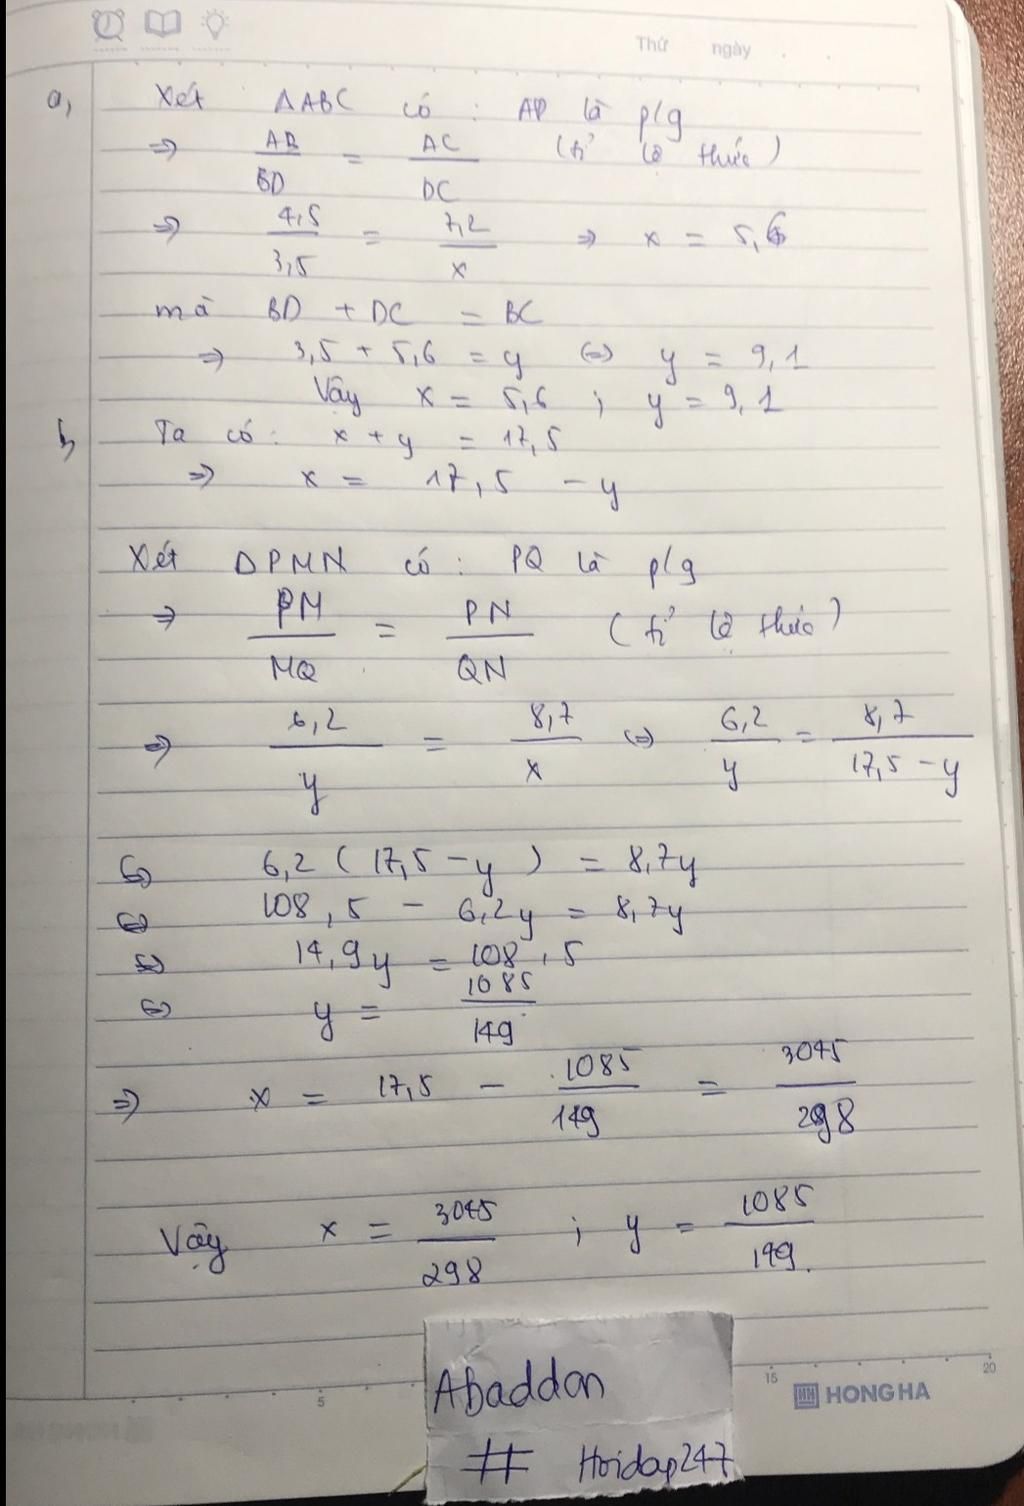 Thứ ngày . .
a, Xét ΔABC có : AD là p/g
=> AB/BD = AC/DC (tỉ lệ thức)
=> 4,5/3,5 = 7,2/x => x = 5,6
mà BD + DC = BC
=> 3,5 + 5,6 = y <=> y = 9,1
Vậy x = 5,6 ; y = 9,1
b, Ta có: x + y = 17,5
=> x = 17,5 - y
Xét ΔPMN có : PQ là p/g
=> PM/MQ = PN/QN (tỉ lệ thức)
=> 6,2/y = 8,7/x <=> 6,2/y = 8,7/(17,5 - y)
<=> 6,2 ( 17,5 - y ) = 8,7y
<=> 108,5 - 6,2y = 8,7y
<=> 14,9y = 108,5
<=> y = 1085/149
=> x = 17,5 - 1085/149 = 3045/298
Vậy x = 3045/298 ; y = 1085/149.
5 15 20
HONG HA
Abaddon
# Hoidap247